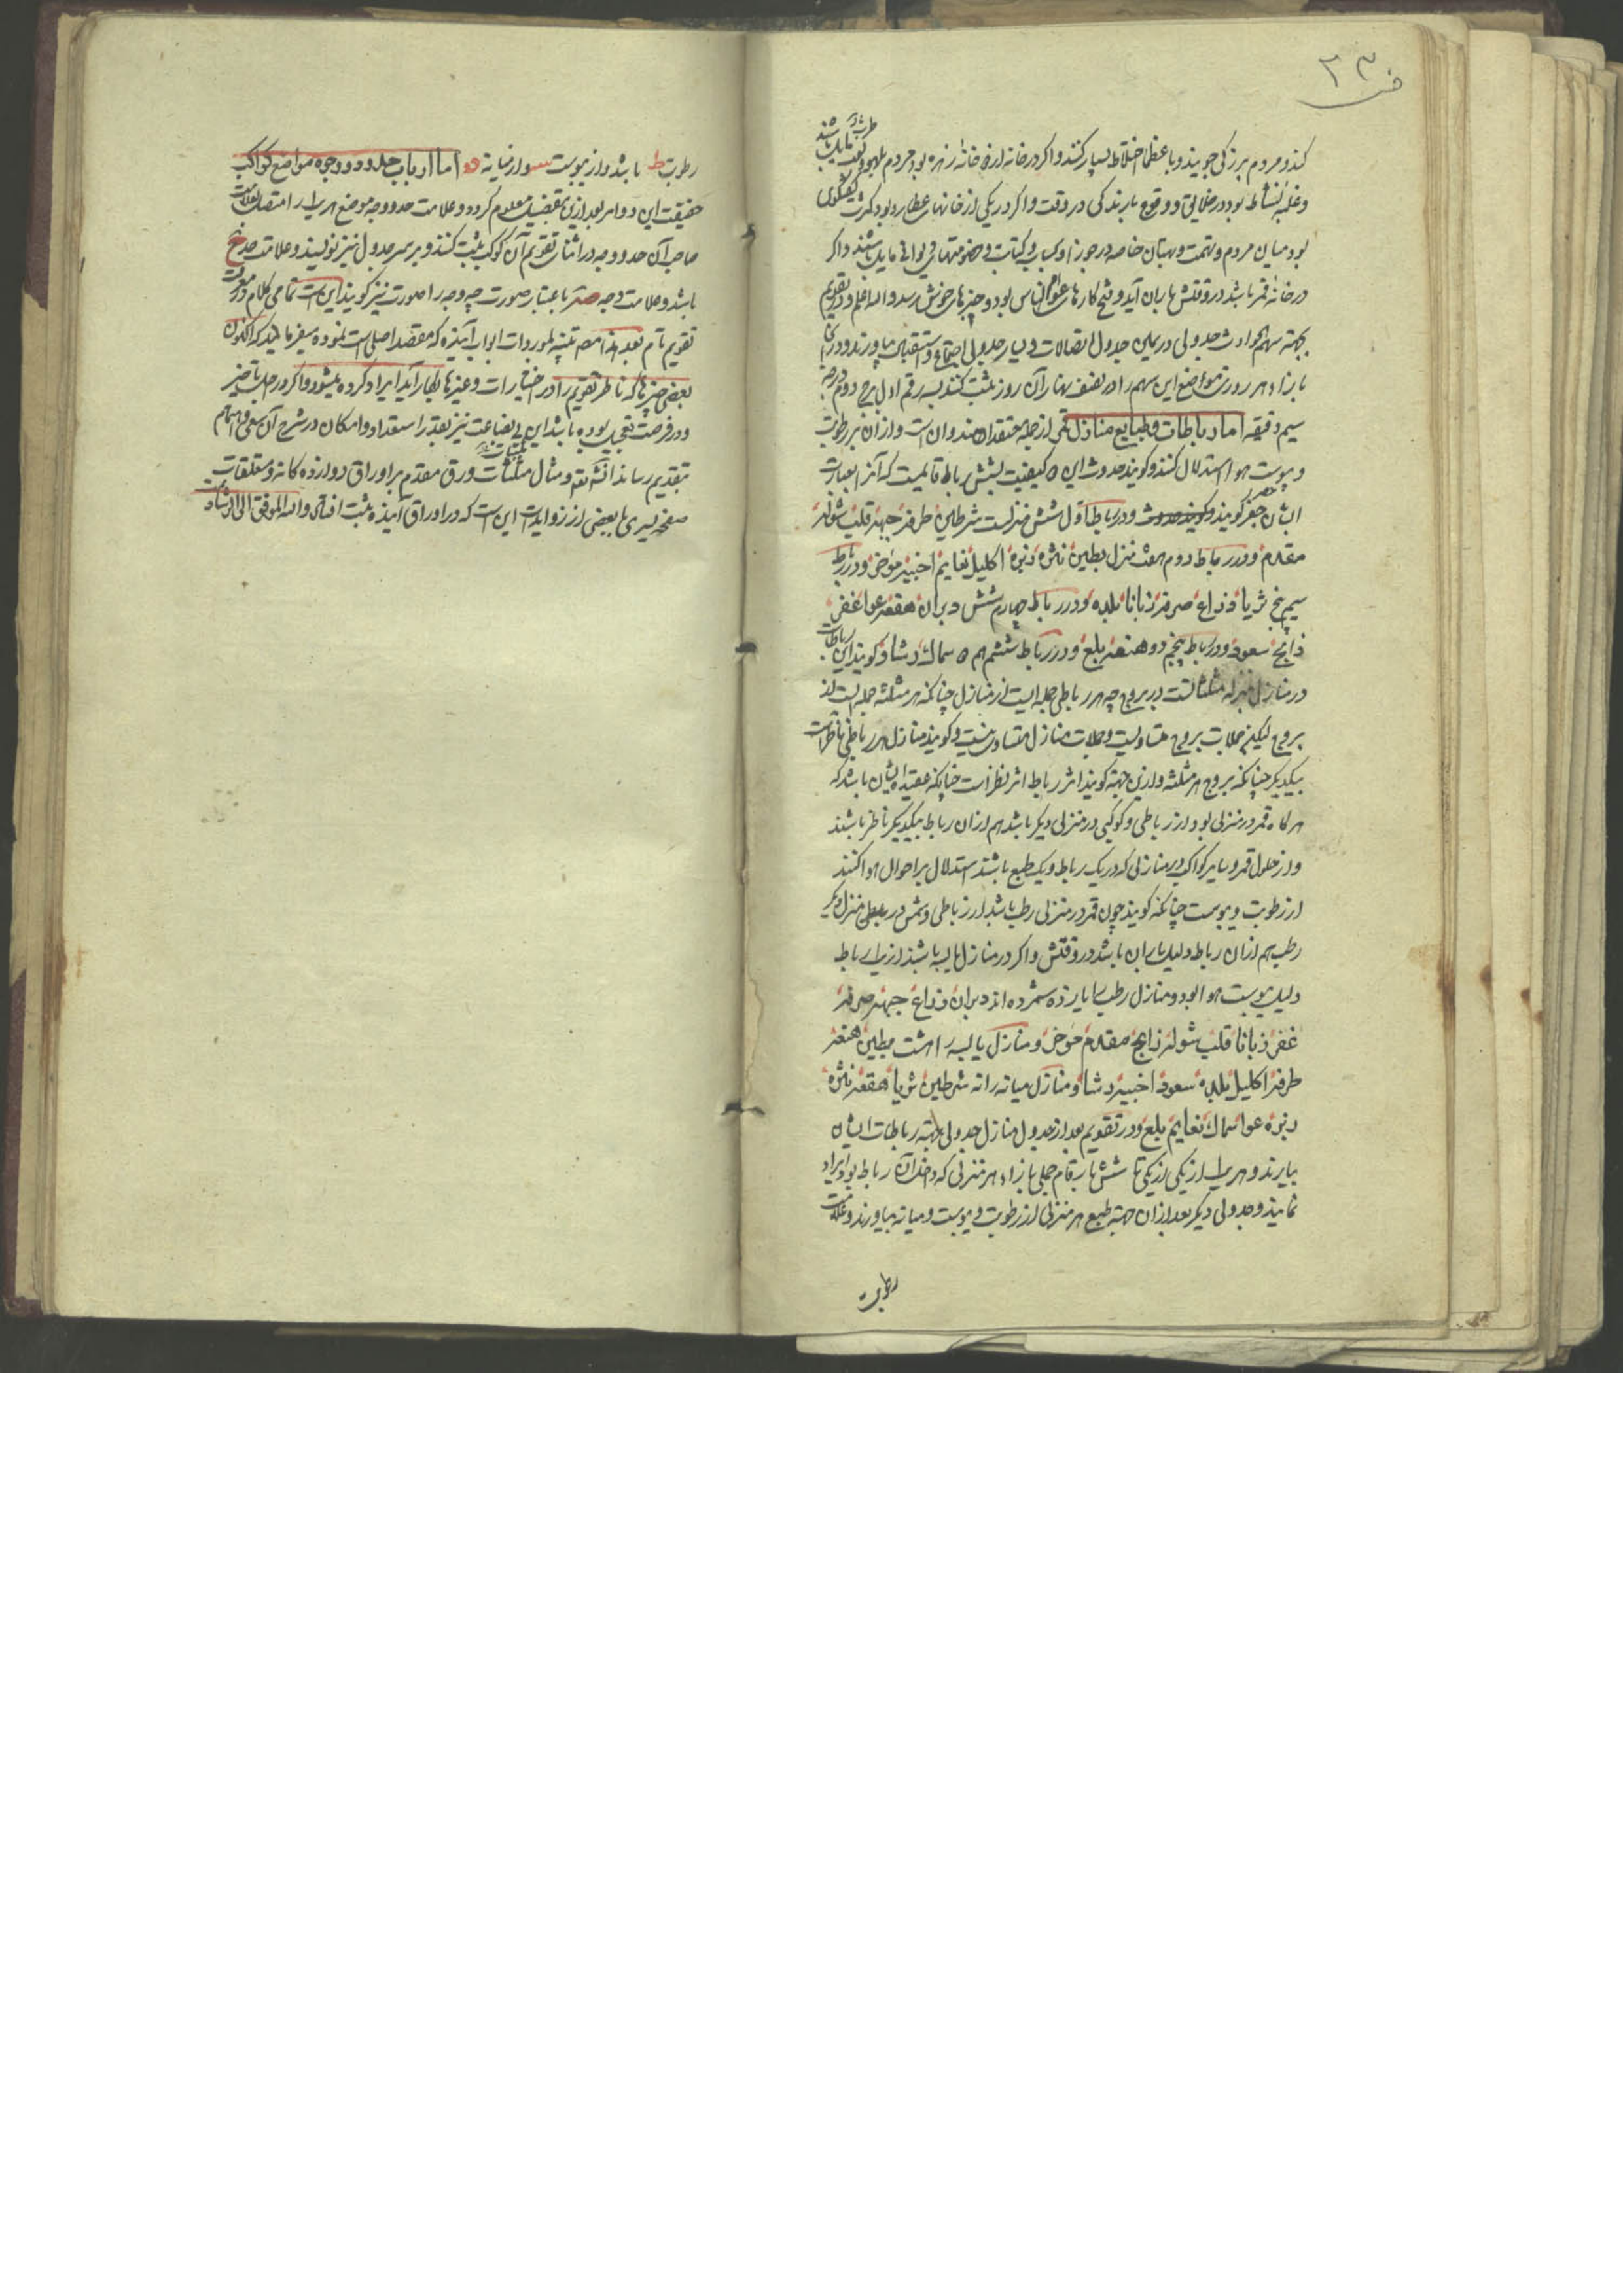 ف ۲۳
کند و مردم بزرگی جویند و با عظما اختلاط بسیار کنند و اگر در خانه از خانهاء زهره بود مردم بلهو و
طرب مایل باشند
و غلبه نشاط بود در خلایق و وقوع بارندگی در وقت و اگر در یکی از خانهای عطارد بود کثرت گفتگوی
بود میان مردم و تهمت و بهتان خاصه در جوزا و کتاب و
در خانه قمر باشد در وقتش باران آید و فتح کارهاء عوام الناس بود و خبرهاء خوش رسد والله اعلم و در تقویم
بجهة سهم الحوادث جدولی در یمین جدول اتصالات و یسار جدول اجتماع و استقبال بیاورند و در آن
بازاء هر روزی مواضع این سهم را در نصف نهار آن روز ثبت کنند بسه رقم اول برج دوم درجه
سیم دقیقه اما رباطات و طبایع منازل قمر از جمله معتقدات هندوان است و از آن بر رطوبت
و یبوست هوا استدلال کنند و گویند حدوث این کیفیت بشش رباط قایمست که آنرا بعبارت
ایشان جفر گویند و در رباط اول شش منزلست شرطین طرفه جبهه قلب شوله
مقدم و در رباط دوم هفت منزل بطین نثره زبره اکلیل نعایم اخبیه موخر و در رباط
سیم پنج ثریا ذراع صرفه زبانا بلده و در رباط چهارم شش دبران هقعه عوا غفر
ذابح سعود و در رباط پنجم دو هنعه بلع و در رباط ششم هم سماک رشا و گویند این رباطات
در منازل بمنزله مثلثاتست در بروج چه هر رباطی جمله ایست از منازل چنانکه هر مثلثه جمله ایست از
بروج لیکن جملات بروج متساویست و جملات منازل متساوی نیست و گویند منازل هر رباطی ناظر است
بیکدیگر چنانکه بروج هر مثلثه و ازین جهة گویند اثر رباط اثر نظر است چنانکه عقیده ایشان باشد که
هرگاه قمر در منزلی بود از رباطی و کوکبی در منزلی دیگر باشد هم از آن رباط بیکدیگر ناظر باشند
و از حلول قمر و سایر کواکب در منازلی که در یک رباط و یک طبع باشند استدلال بر احوال هوا کنند
از رطوبت و یبوست چنانکه گویند چون قمر در منزلی رطب باشد از رباطی و شمس در منزل دیگر
رطب هم از آن رباط دلیل باران باشد در وقتش و اگر در منازل یابسه باشند از یک رباط
دلیل یبوست هوا بود و منازل رطب را یازده شمرده اند دبران ذراع جبهه صرفه
غفر زبانا قلب شوله ذابح مقدم موخر و منازل یابسه را هشت بطین هنعه
طرفه اکلیل بلده سعود اخبیه رشا و منازل میانه را نه شرطین ثریا هقعه نثره
زبره عوا سماک نعایم بلع و در تقویم بعد از جدول منازل جدولی بجهة رباطات ایشان
بیارند و هر یک را از یکی تا شش بارقام جملی بازاء هر منزلی که داخل آن رباط بود ایراد
نمایند و جدولی دیگر بعد از آن جهة طبع هر منزلی از رطوبت و یبوست و میانه بیاورند و علامت
رطوبت
رطوبت ط باشد و از یبوست س و از میانه اما ارباب حدود و وجوه مواضع کواکب
حقیقت این دو امر بعد ازین بتفصیل معلوم گردد و علامت حد و وجه موضع هر یک را متصل بعلامت
صاحب آن حد و وجه در اثناء تقویم آن کوکب ثبت کنند و بر سر جدول نیز نویسند و علامت حد خ
باشد و علامت وجه صر باعتبار صورت چه وجه را صورت نیز گویند این است تمامی کلام در معرفت
تقویم تام بعد هذا مصنف تنبیه بموردات ابواب آینده که مقصد اصلی است نموده میفرماید که اکنون
بعضی چیزها که ناظر تقویم را در اختیارات و غیرها بکار آید ایراد کرده میشود و اگر در اجل تاخیر
و در فرصت تعجیل بوده باشد این بی بضاعت نیز بقدر استعداد و امکان در شرح آن سعی و اهتمام
بتقدیم رساند انشاء الله و مثال ورق مقدم بر اوراق دوازده گانه و متعلقات
صفحه یسری با بعضی از زواید این است که در اوراق آینده ثبت افتاد والله الموفق الی الرشاد